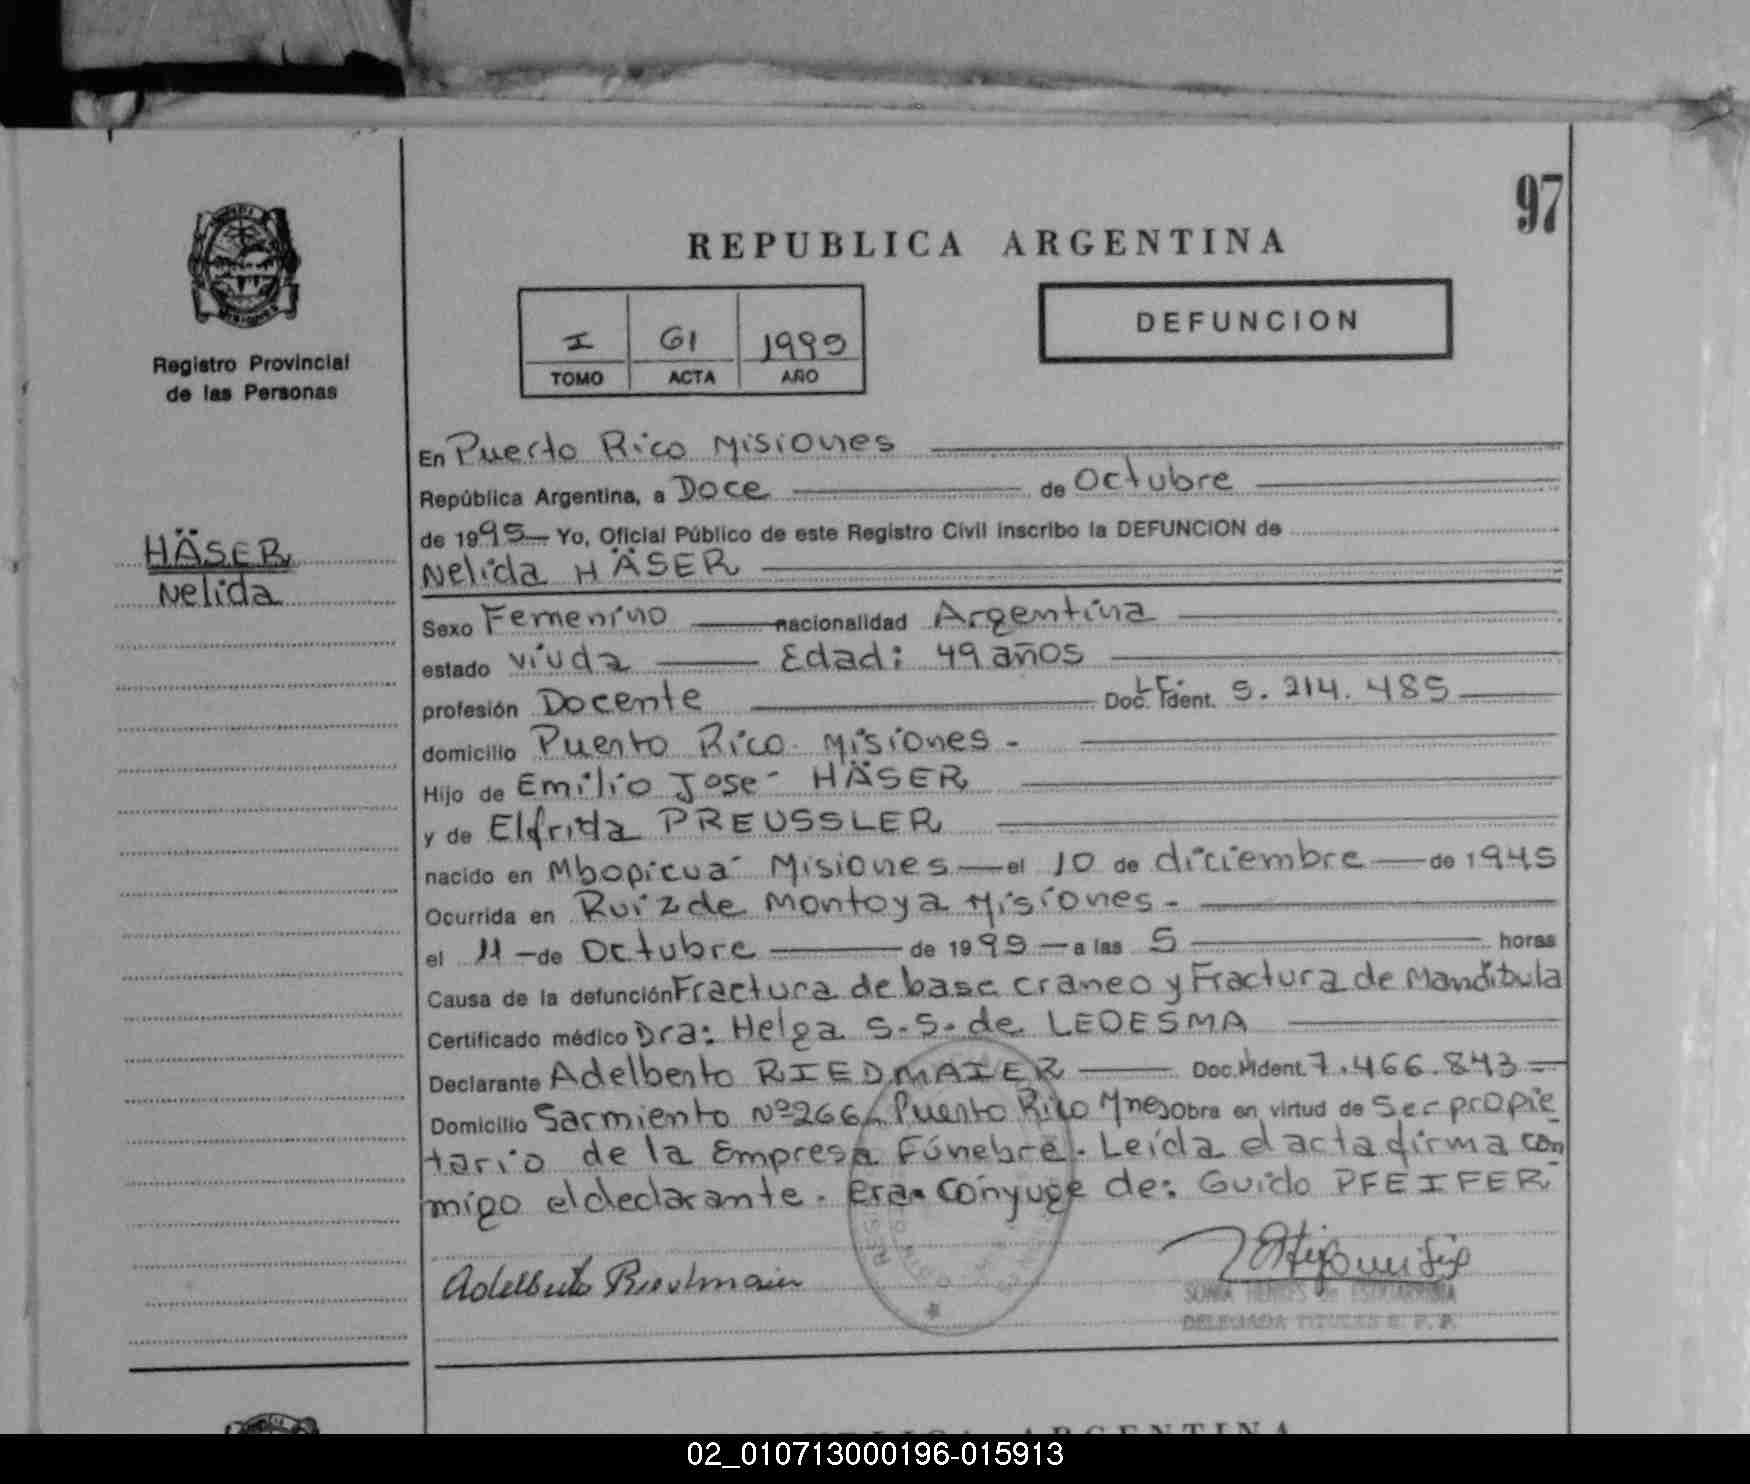 97
REPUBLICA ARGENTINA
I 61 1995
TOMO ACTA AÑO
DEFUNCION
Registro Provincial
de las Personas
HÄSER
Nelida
En Puerto Rico Misiones
República Argentina, a Doce de Octubre
de 1995 Yo, Oficial Público de este Registro Civil inscribo la DEFUNCION de
Nelida HÄSER
Sexo Femenino nacionalidad Argentina
estado viuda Edad: 49 años
profesión Docente Doc. Ident. L.C. 5.214.485
domicilio Puerto Rico Misiones -
Hijo de Emilio José HÄSER
y de Elfrida PREUSSLER
nacido en Mbopicuá Misiones el 10 de diciembre de 1945
Ocurrida en Ruiz de Montoya Misiones -
el 11 - de Octubre de 1995 a las 5 horas
Causa de la defunción Fractura de base craneo y Fractura de Mandíbula
Certificado médico Dra: Helga S.S. de LEDESMA
Declarante Adelberto RIEDMAIER Doc. Ident. 7.466.843
Domicilio Sarmiento Nº 266 Puerto Rico Mnes Obra en virtud de Ser propie
tario de la Empresa Fúnebre. Leída el acta firma con
migo el declarante. Era Cónyuge de: Guido PFEIFER
Adelberto Riedmaier
DELEGADA TITULAR R. P. P.
02_010713000196-015913